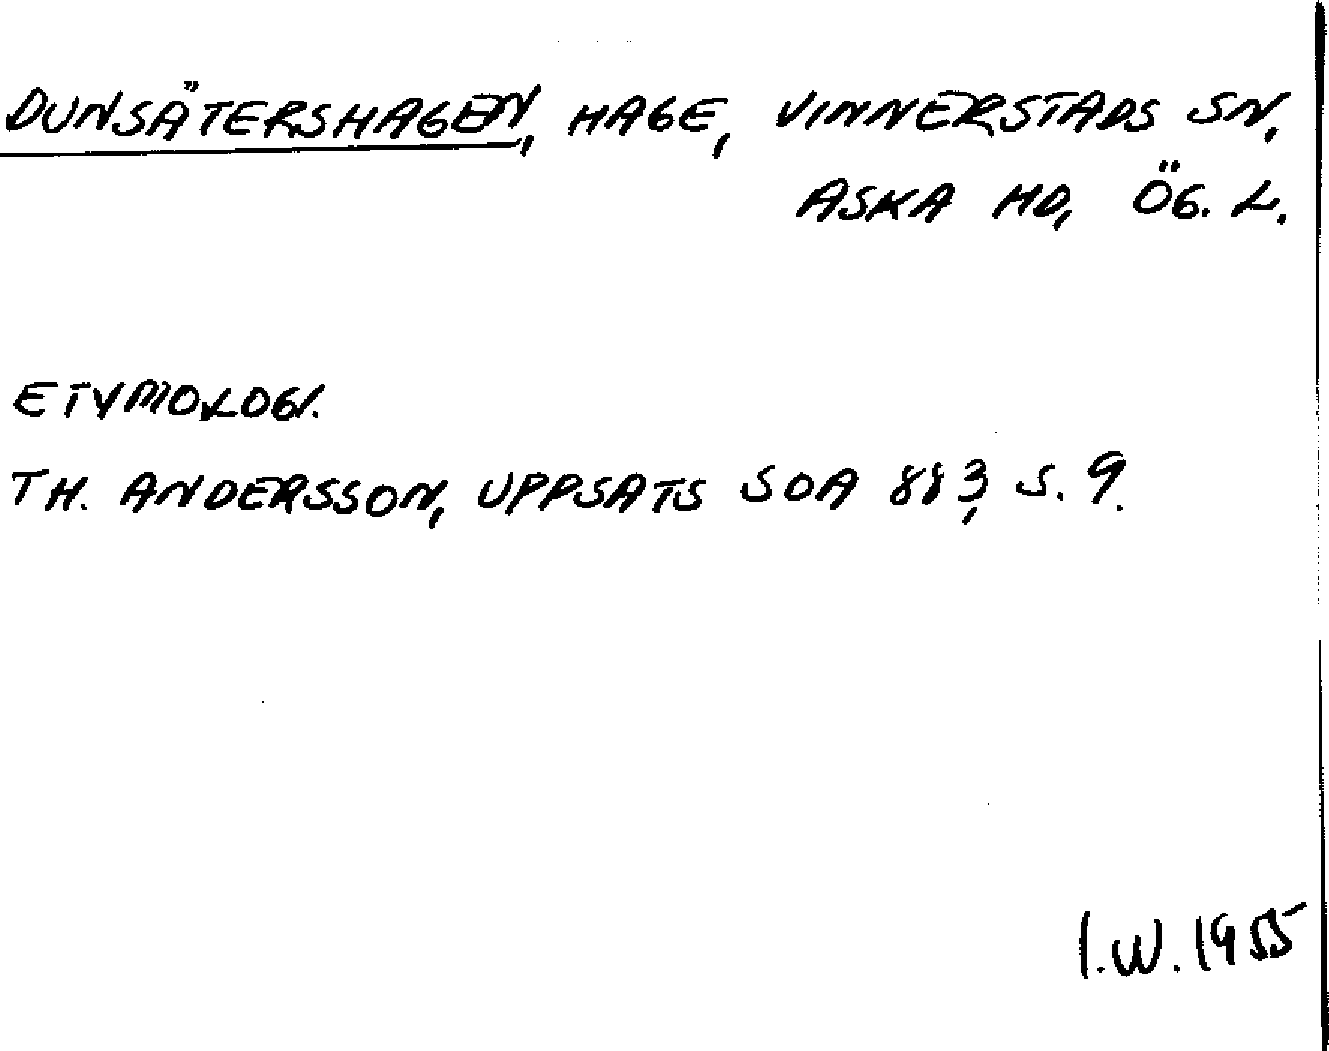 DUNSÄTERSHAGEN, HAGE, VINNERSTADS SN,
ASKA HD, ÖG. L.
ETYMOLOGI.
TH. ANDERSSON, UPPSATS SOA 883, S. 9.
I.W. 1955